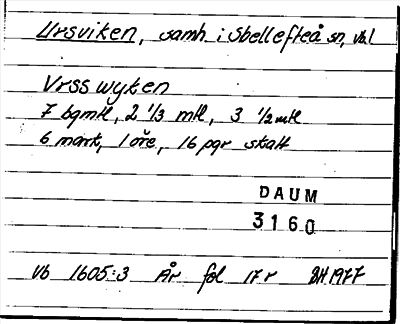 Ursviken, samh. i Skellefteå sn, vbl
Vrsswyken
7 bgmtl, 2 1/3 mtl, 3 1/2 mtl
6 mark, 1 öre, 16 pgr skatt
DAUM
3160
Vb 1605:3 År fol 17 r BH 1977